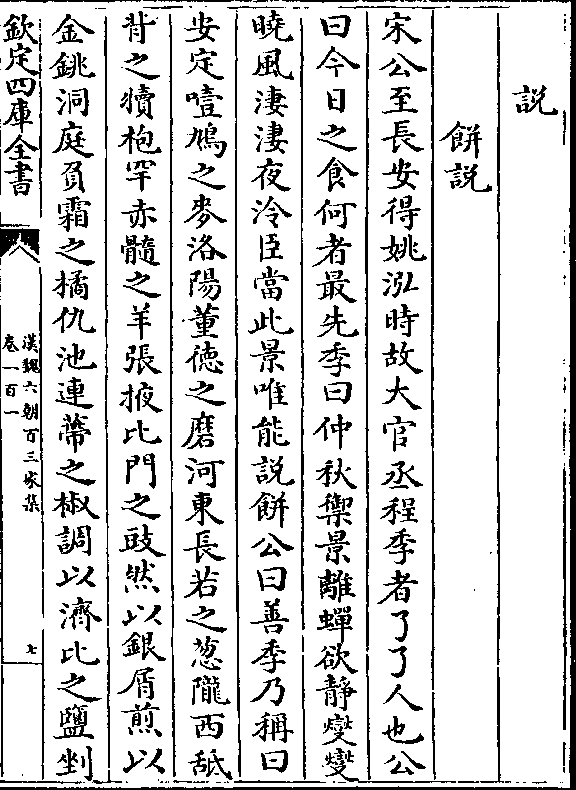 說
餅説
宋公至長安得姚泓時故大官丞程季者了了人也公
曰今日之食何者最先季曰仲秋禦景離蟬欲静燮燮
曉風淒淒夜冷臣當此景唯能説餅公曰善季乃稱曰
安定噎鳩之麥洛陽董徳之磨河東長若之葱隴西舐
背之犢枹罕赤髓之羊張掖北門之豉然以銀屑煎以
金銚洞庭負霜之橘仇池連蔕之椒調以濟北之鹽剉
欽定四庫全書
漢魏六朝百三家集
卷一百一
七